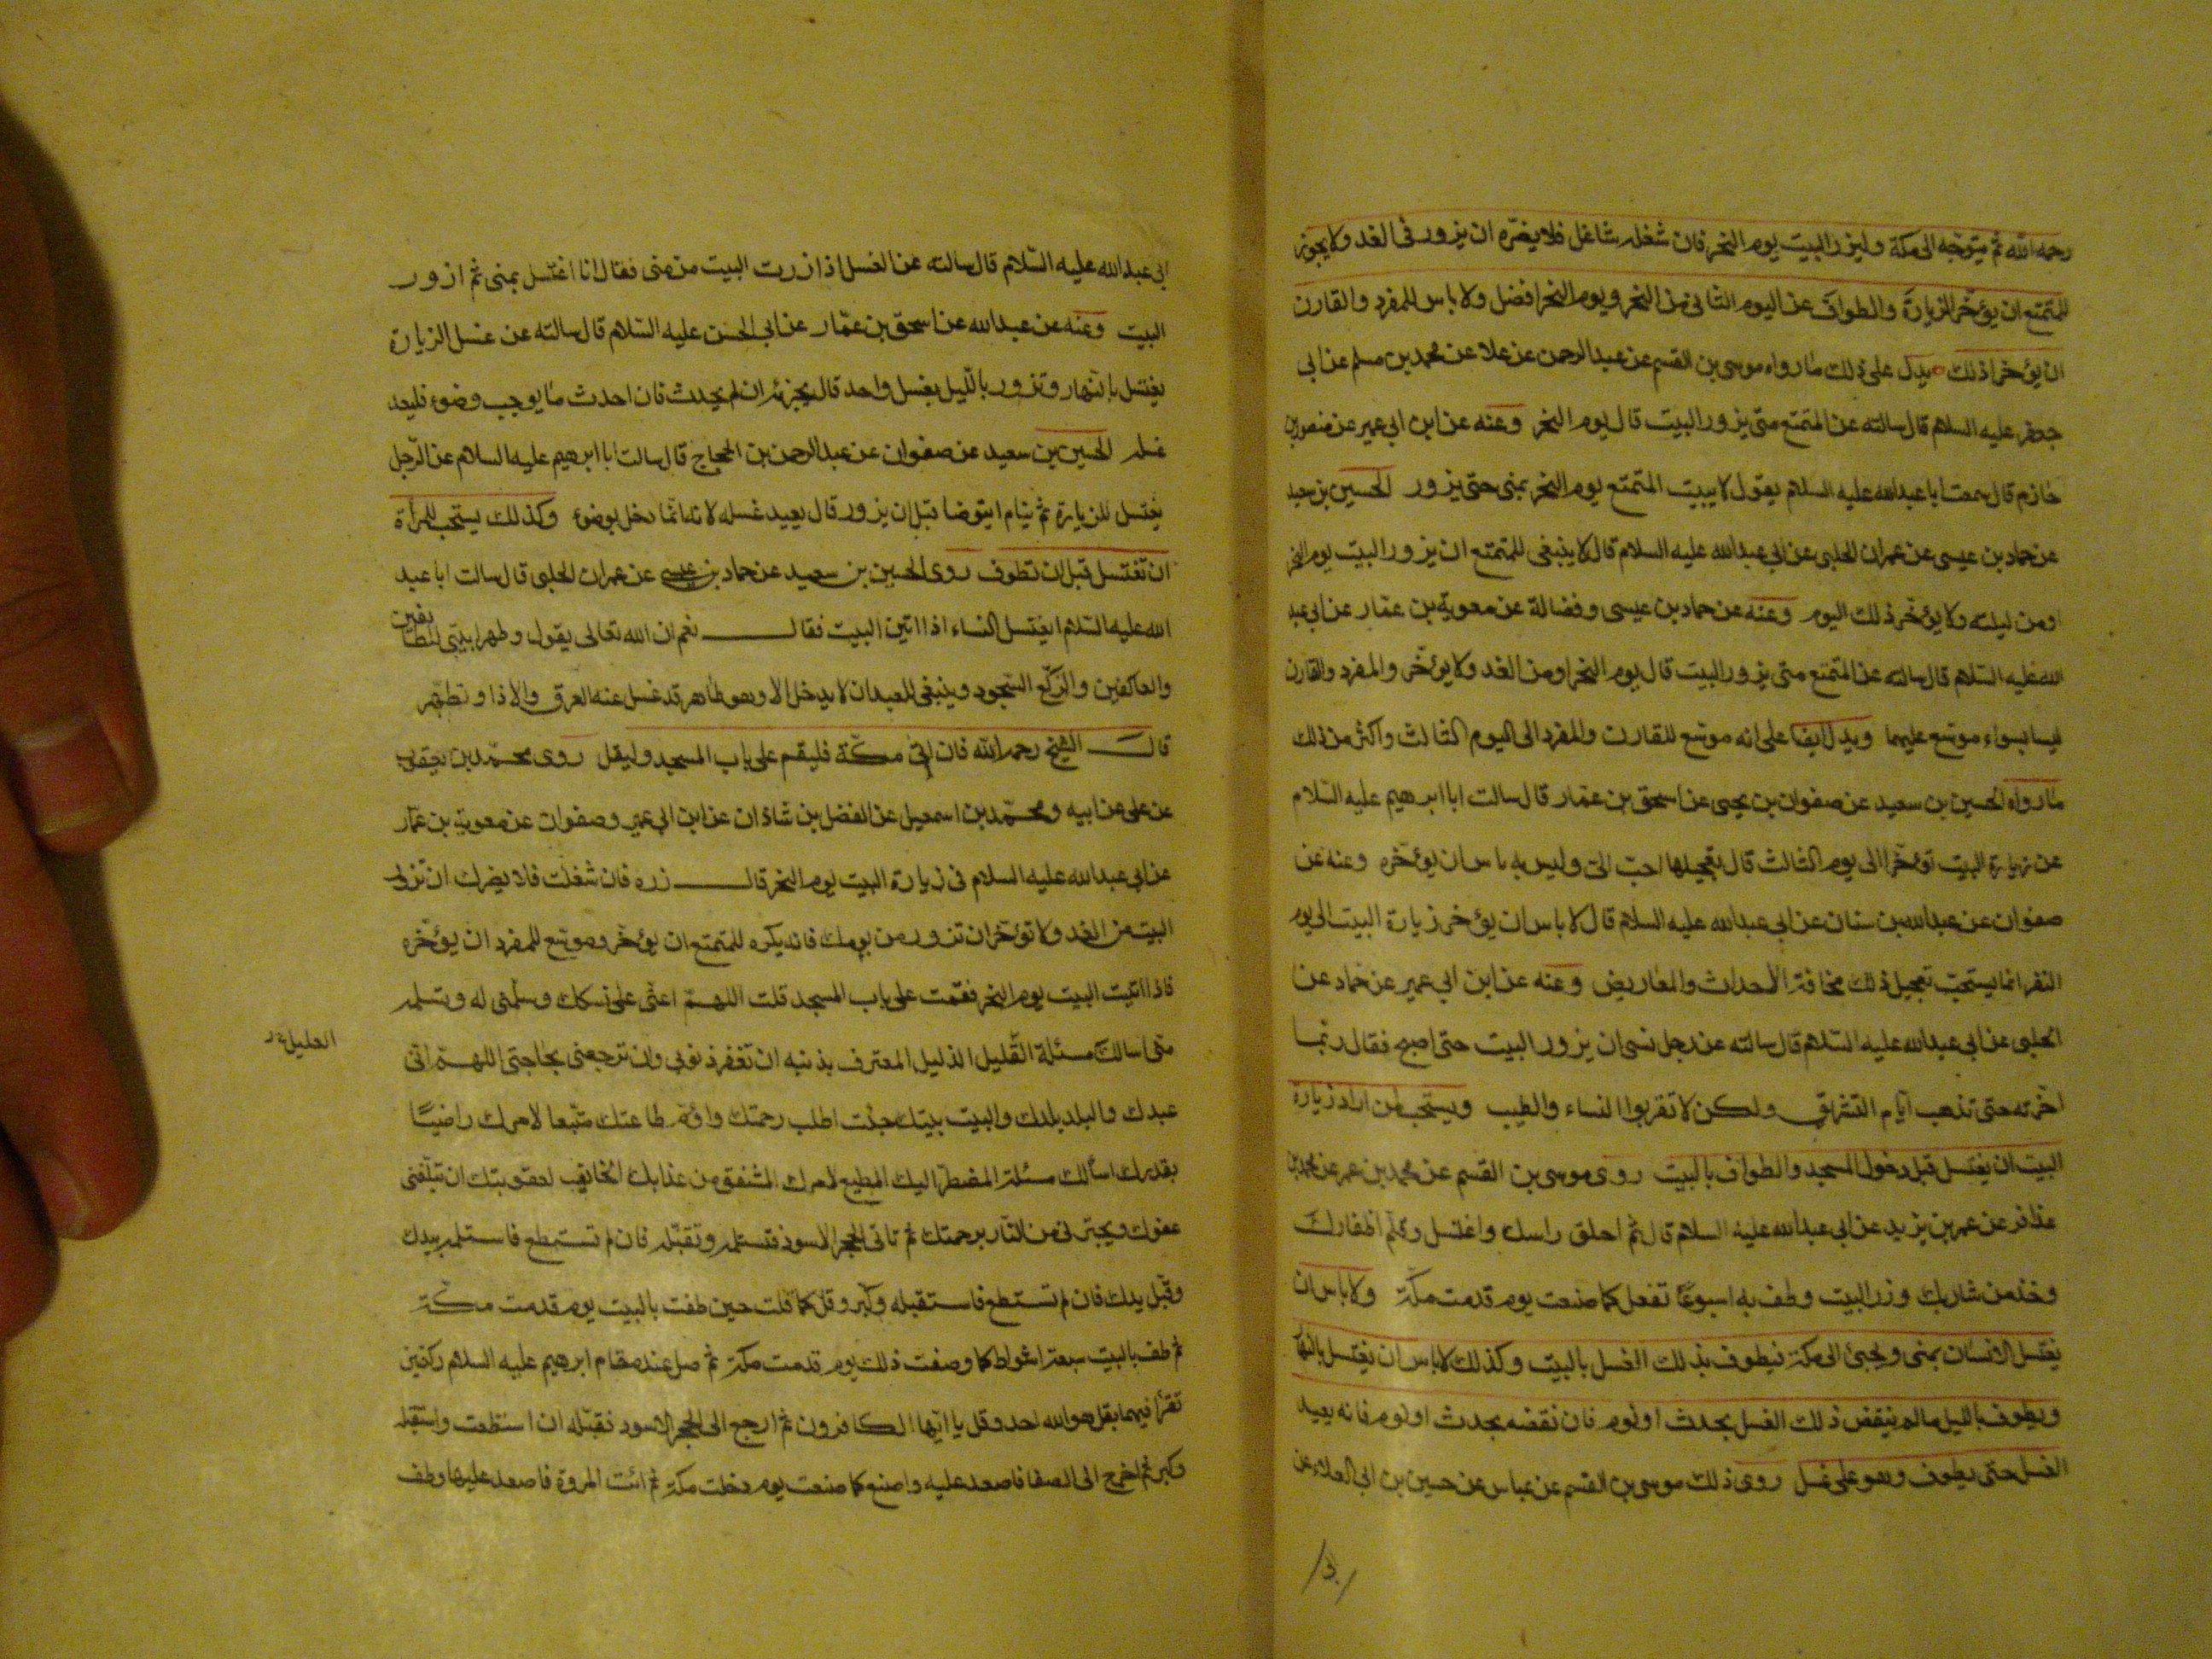 رحمه الله ثم يتوجه الى مكة وليزر البيت يوم النحر فان شغله شاغل فلا يضره ان يزور فى الغد ولا يجوز
للمتمتع ان يؤخر الزيارة والطواف عن اليوم الثانى من النحر ويوم النحر افضل ولا باس للمفرد والقارن
ان يؤخرا ذلك يدل على ذلك ما رواه موسى بن القسم عن عبد الرحمن عن علا عن محمد بن مسلم عن ابى
جعفر عليه السلام قال سالته عن المتمتع متى يزور البيت قال يوم النحر وعنه عن ابن ابى عمير عن منصور بن
حازم قال سمعت ابا عبد الله عليه السلام يقول لا يبيت المتمتع يوم النحر بمنى حتى يزور الحسين بن سعيد
عن حماد بن عيسى عن عمران الحلبى عن ابى عبد الله عليه السلام قال لا ينبغى للمتمتع ان يزور البيت يوم النحر
او من ليلته ولا يؤخر ذلك اليوم وعنه عن حماد بن عيسى وفضالة عن معوية بن عمار عن ابى عبد
الله عليه السلام قال سالته عن المتمتع متى يزور البيت قال يوم النحر او من الغد ولا يؤخر والمفرد والقارن
ليسا بسواء موسع عليهما ويدل ايضا على انه موسع للقارن والمفرد الى اليوم الثالث واكثر من ذلك
ما رواه الحسين بن سعيد عن صفوان بن يحيى عن اسحق بن عمار قال سالت ابا ابرهيم عليه السلام
عن زيارة البيت تؤخر الى يوم الثالث قال تعجيلها احب الى وليس به باس ان يؤخره وعنه عن
صفوان عن عبد الله بن سنان عن ابى عبد الله عليه السلام قال لا باس ان يؤخر زيارة البيت الى يوم
النفر انما يستحب تعجيل ذلك مخافة الاحداث والمعاريض وعنه عن ابن ابى عمير عن حماد عن
الحلبى عن ابى عبد الله عليه السلام قال سالته عن رجل نسى ان يزور البيت حتى اصبح فقال ربما
اخرته حتى تذهب ايام التشريق ولكن لا تقربوا النساء والطيب ويستحب لمن اراد زيارة
البيت ان يغتسل قبل دخول المسجد والطواف بالبيت روى موسى بن القسم عن محمد بن عمر عن محمد بن
عذافر عن عمر بن يزيد عن ابى عبد الله عليه السلام قال ثم احلق راسك واغتسل وقلم اظفارك
وخذ من شاربك وزر البيت وطف به اسبوعا تفعل كما صنعت يوم قدمت مكة ولا باس ان
يغتسل الانسان بمنى ويجئ الى مكة فيطوف بذلك الغسل بالبيت وكذلك لا باس ان يغتسل بالنهار
ويطوف بالليل ما لم ينقض ذلك الغسل بحدث او نوم فان نقضه بحدث او نوم فانه يعيد
الغسل حتى يطوف وهو على غسل روى ذلك موسى بن القسم عن عباس عن حسين بن ابى العلاء عن
ابى عبد الله عليه السلام قال سالته عن الغسل اذا زرت البيت من منى فقال انا اغتسل بمنى ثم ازور
البيت وعنه عن عبد الله عن اسحق بن عمار عن ابى الحسن عليه السلام قال سالته عن غسل الزيارة
يغتسل بالنهار وتزور بالليل بغسل واحد قال يجزئه ان لم يحدث فان احدث ما يوجب وضوء فليعد
غسله الحسين بن سعيد عن صفوان عن عبد الرحمن بن الحجاج قال سالت ابا ابرهيم عليه السلام عن الرجل
يغتسل للزيارة ثم ينام ايتوضا قبل ان يزور قال يعيد غسله لانه انما دخل بوضوء وكذلك يستحب للمراة
ان تغتسل قبل ان تطوف روى الحسين بن سعيد عن حماد بن عيسى عن عمران الحلبى قال سالت ابا عبد
الله عليه السلام ايغتسل النساء اذا اتين البيت فقال نعم ان الله تعالى يقول وطهرا بيتى للطائفين
والعاكفين والركع السجود وينبغى للعبد ان لا يدخل الا وهو طاهر قد غسل عنه العرق والاذا وتطهر
قال الشيخ رحمه الله فان اتى مكة فليقم على باب المسجد وليقل روى محمد بن يعقوب
عن على عن ابيه ومحمد بن اسمعيل عن الفضل بن شاذان عن ابن ابى عمير وصفوان عن معوية بن عمار
عن ابى عبد الله عليه السلام فى زيارة البيت يوم النحر قال زره فان شغلت فلا يضرك ان تزور
البيت من الغد ولا تؤخر ان تزور من يومك فانه يكره للمتمتع ان يؤخر وموسع للمفرد ان يؤخره
فاذا اتيت البيت يوم النحر فقمت على باب المسجد قلت اللهم اعنى على نسكك وسلمنى له وتسلمه
منى اسالك مسئلة القليل الذليل المعترف بذنبه ان تغفر ذنوبى وان ترجعنى بحاجتى اللهم انى
العليل
عبدك والبلد بلدك والبيت بيتك جئت اطلب رحمتك واؤم طاعتك متبعا لامرك راضيا
بقدرك اسألك مسئلة المضطر اليك المطيع لامرك المشفق من عذابك الخائف لعقوبتك ان تبلغنى
عفوك وتجيرنى من النار برحمتك ثم تاتى الحجر الاسود فتستلمه وتقبله فان لم تستطع فاستلمه بيدك
وقبل يدك فان لم تستطع فاستقبله وكبر وقل كما قلت حين طفت بالبيت يوم قدمت مكة
ثم طف بالبيت سبعة اشواط كما وصفت ذلك يوم قدمت مكة ثم صل عند مقام ابرهيم عليه السلام ركعتين
تقرأ فيهما بقل هو الله احد وقل يا ايها الكافرون ثم ارجع الى الحجر الاسود فقبله ان استطعت واستقبله
وكبر ثم اخرج الى الصفا فاصعد عليه واصنع كما صنعت يوم دخلت مكة ثم ائت المروة فاصعد عليها وطف